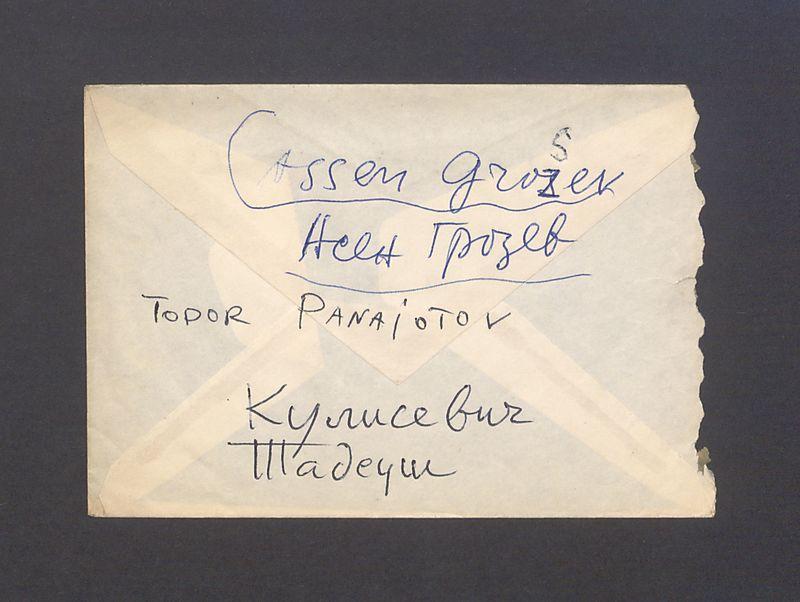 Assen Grozev
S
Асен Грозев
TODOR PANAJOTOV
Кулисевич
Тадеуш